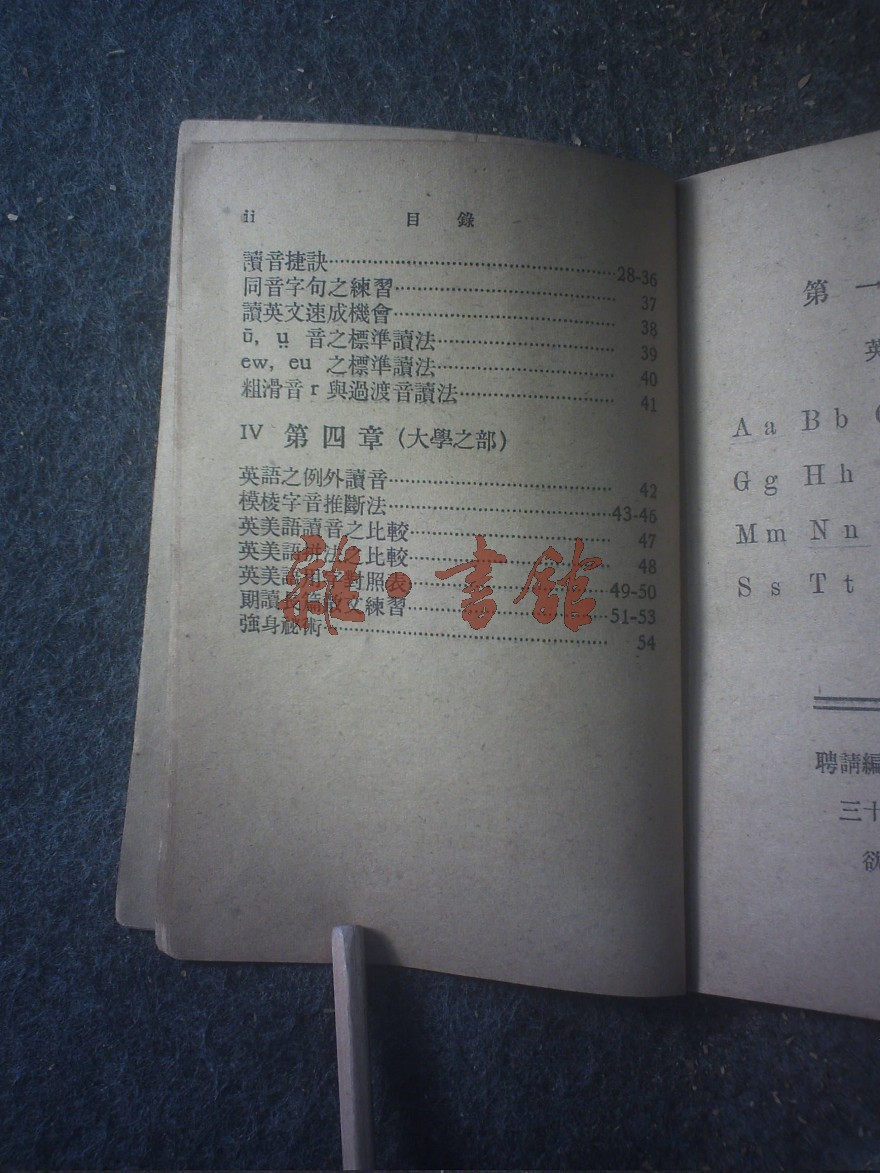 ii 目 錄
讀音捷訣 28-36
同音字句之練習 37
讀英文速成機會 38
ū, ṳ 音之標準讀法 39
ew, eu 之標準讀法 40
粗滑音 r 與過渡音讀法 41
IV 第四章 (大學之部)
英語之例外讀音 42
模棱字音推斷法 43-46
英美語讀音之比較 47
英美語拼法之比較 48
英美語用字對照表 49-50
朗讀長篇散文練習 51-53
強身祕術 54
雜·書館
第 一
英
A a B b
G g H h
M m N n
S s T t
聘請編
三十
欲